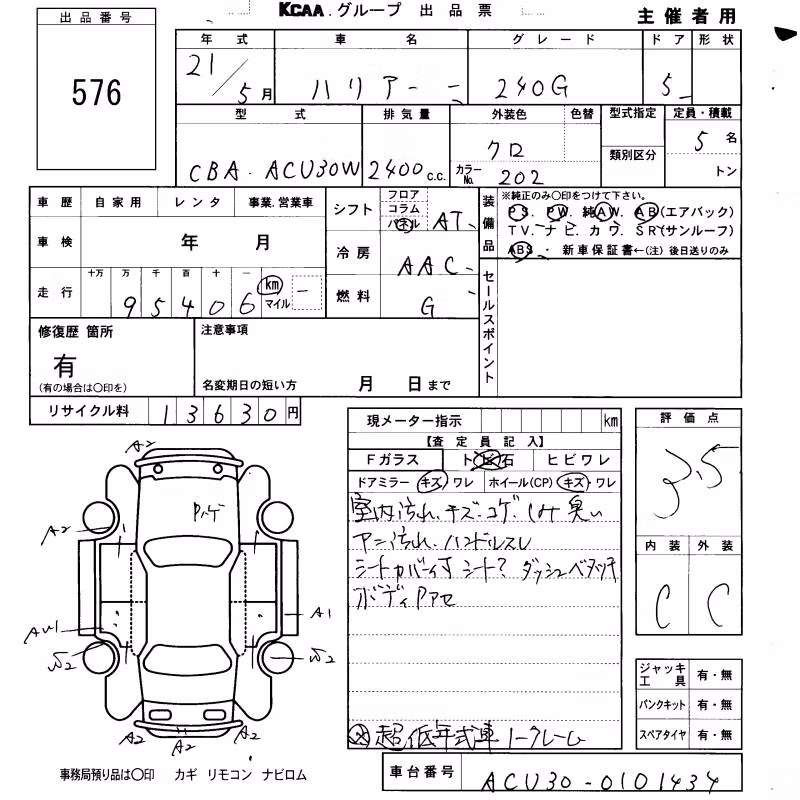 KCAA.グループ 出品票
主催者用
出品番号
576
年式 車名 グレード ドア 形状
21/5月 ハリアー 240G 5
型式 排気量 外装色 色替 型式指定 定員・積載
CBA-ACU30W 2400c.c. クロ 類別区分 5名
カラーNo. 202 トン
車歴 自家用 レンタ 事業.営業車
車検 年 月
走行 十万 万 千 百 十 一
95406 km マイル
シフト フロア コラム パネル AT
冷房 AAC
燃料 G
装備品
※純正のみ○印をつけて下さい。
PS. PW. 純AW. AB(エアバック)
TV. ナビ. カワ. SR(サンルーフ)
ABS ・ 新車保証書←(注) 後日送りのみ
セールスポイント
修復歴 箇所
有
(有の場合は○印を)
注意事項
名変期日の短い方 月 日まで
リサイクル料 13630円
現メーター指示 km
【査定員記入】
Fガラス トビ石 ヒビワレ
ドアミラー キズ・ワレ ホイール(CP) キズ・ワレ
室内汚れ.キズ.コゲ.シミ 臭い
汚れ.ハンドルスレ
シートカバー付 シート? ダッシュベタツキ
ボディ
超低年式車 ノークレーム
車台番号 ACU30-0101434
評価点
3.5
内装 外装
C C
ジャッキ工具 有・無
パンクキット 有・無
スペアタイヤ 有・無
A2
A2
A1
AW1
A2
A2
A2
事務局預り品は○印 カギ リモコン ナビロム